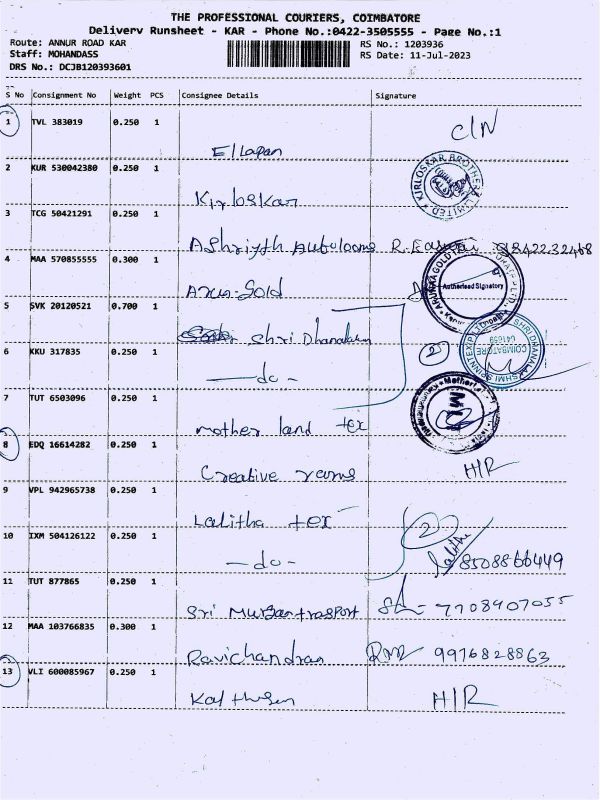 THE PROFESSIONAL COURIERS, COIMBATORE
Delivery Runsheet - KAR - Phone No.:0422-3505555 - Page No.:1
Route: ANNUR ROAD KAR RS No.: 1203936
Staff: MOHANDASS RS Date: 11-Jul-2023
DRS No.: DCJB120393601
S No Consignment No Weight PCS Consignee Details Signature
1 TVL 383019 0.250 1
Ellapan C/N
2 KUR 530042380 0.250 1
Kirloskar KIRLOSKAR BROTHERS LIMITED
3 TCG 50421291 0.250 1
Ashriyth Autolooms R.
4 MAA 570855555 0.300 1
Arun Gold Authorised Signatory
5 SVK 20120521 0.700 1
Shri Dhanalaxm
6 KKU 317835 0.250 1
- do - 2 SHRI DHANALAKSHMI SPINNTEX COIMBATORE 641659
7 TUT 6503096 0.250 1
mother land tex
8 EDQ 16614282 0.250 1
Creative yarns H/R
9 VPL 942965738 0.250 1
Lalitha tex
10 IXM 504126122 0.250 1
- do - 2 Lalitha 8508866449
11 TUT 877865 0.250 1
Sri Murgan trasport 7708907055
12 MAA 103766835 0.300 1
Ravichandran 9976828863
13 VLI 600085967 0.250 1
H/R